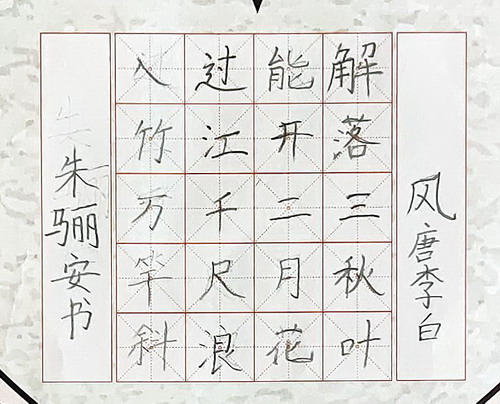 风唐李白
解落三秋叶
能开二月花
过江千尺浪
入竹万竿斜
朱骊安书